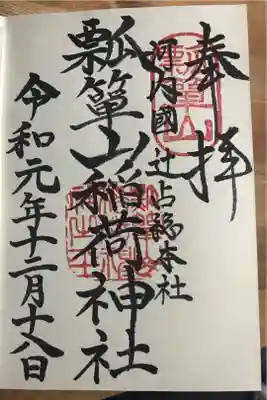 奉拝
河内國辻占総本社
瓢箪山稲荷神社
令和元年十二月十八日